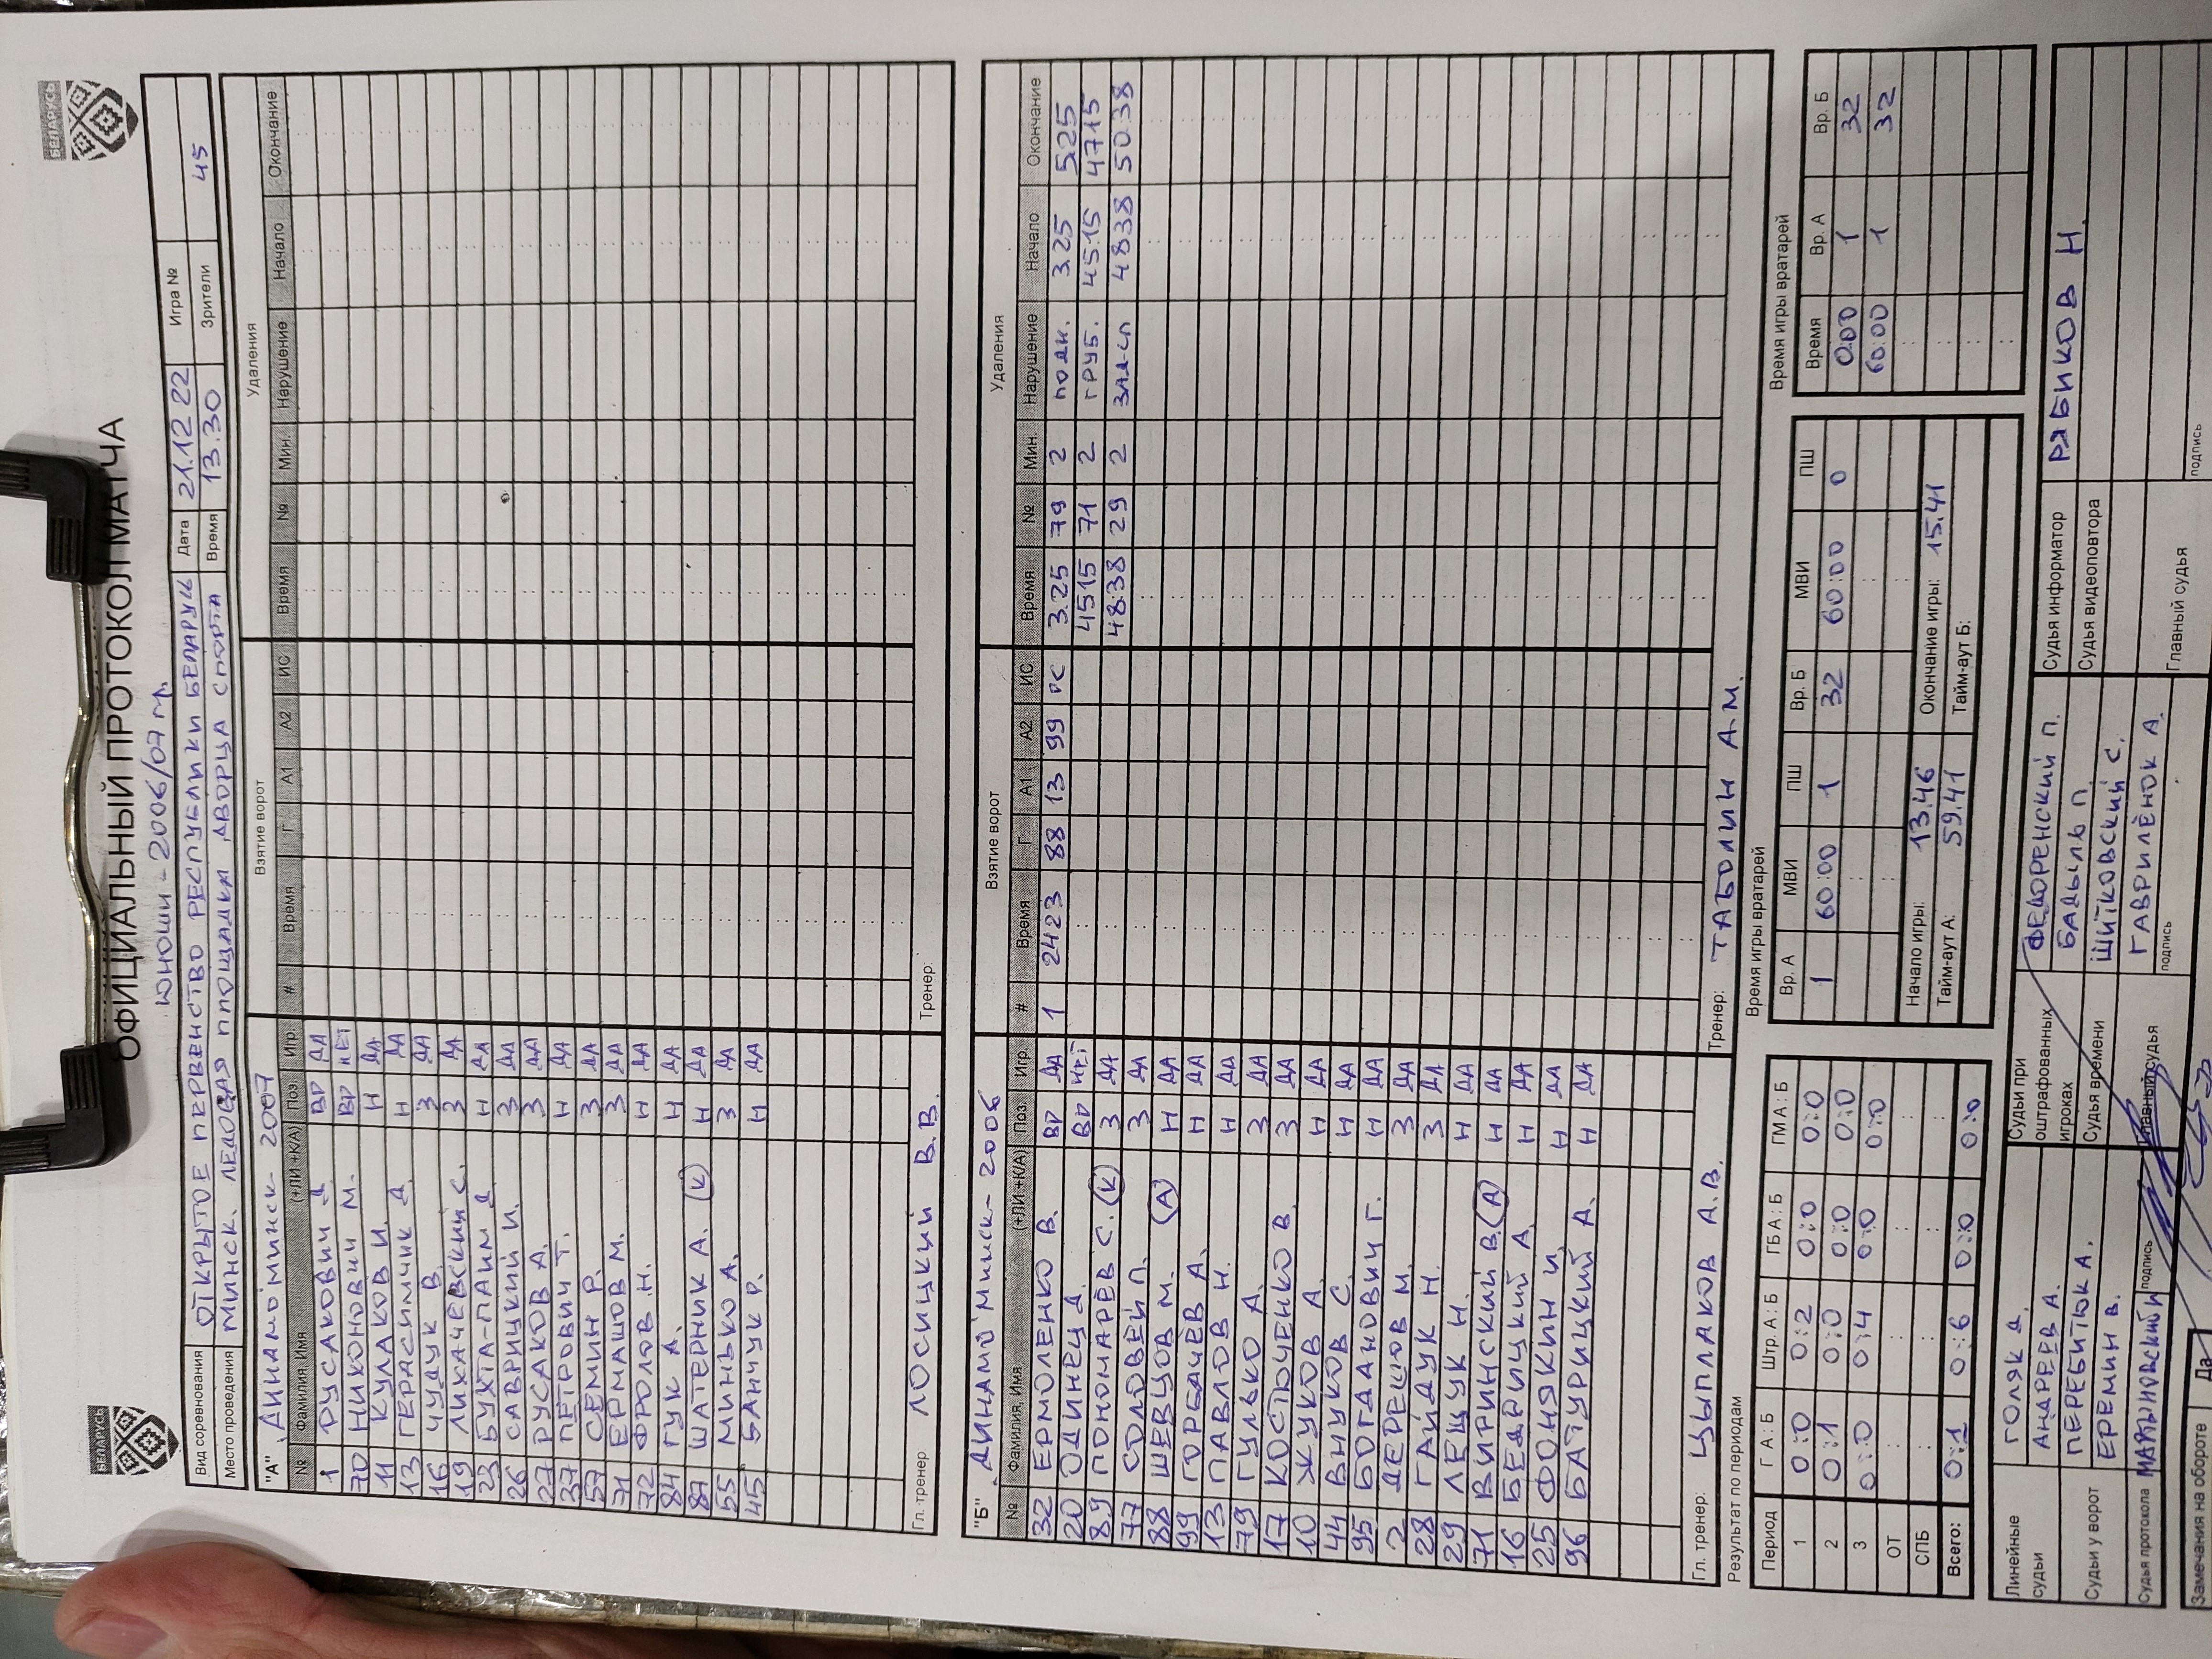 БЕЛАРУСЬ БЕЛАРУСЬ
ОФИЦИАЛЬНЫЙ ПРОТОКОЛ МАТЧА
ЮНОШИ - 2006/07 гр.
Вид соревнования ОТКРЫТОЕ ПЕРВЕНСТВО РЕСПУБЛИКИ БЕЛАРУСЬ Дата 21.12.22 Игра №
Место проведения МИНСК. ЛЕДОВАЯ ПЛОЩАДКА ДВОРЦА СПОРТА Время 13.30 Зрители 45
"А" ДИНАМО МИНСК - 2007 Взятие ворот Удаления
№ Фамилия, Имя (+ЛИ +К/А) Поз. Игр. # Время Г А1 А2 ИС Время № Мин. Нарушение Начало Окончание
1 РУСАКОВИЧ Д ВР ДА
70 НИКОНОВИЧ М. ВР НЕТ
11 КУЛАКОВ И. Н ДА
13 ГЕРАСИМЧИК Д Н ДА
16 ЧУДУК В. З ДА
19 ЛИХАЧЕВСКИЙ С. З ДА
23 БУХТА-ПАИМ Д Н ДА
26 САВРИЦКИЙ И. З ДА
27 РУСАКОВ А. З ДА
37 ПЕТРОВИЧ Т. Н ДА
57 СЕМИН Р. З ДА
71 ЕРМАШОВ М. З ДА
72 ФРОЛОВ Н. Н ДА
84 ГУК А. Н ДА
87 ШАТЕРНИК А. (К) Н ДА
55 МИНЬКО А. З ДА
45 БАНЧУК Р. Н ДА
Гл. тренер ЛОСИЦКИЙ В.В. Тренер:
"Б" ДИНАМО МИНСК - 2006 Взятие ворот Удаления
№ Фамилия, Имя (+ЛИ +К/А) Поз. Игр. # Время Г А1 А2 ИС Время № Мин. Нарушение Начало Окончание
32 ЕРМОЛЕНКО В. ВР ДА 1 24 23 88 13 99 РС 3.25 79 2 ПОДН. 3.25 5.25
20 ОДИНЕЦ Д. ВР НЕТ 45 15 71 2 ГРУБ. 45.15 47.15
89 ПОНОМАРЁВ С. (К) З ДА 48.38 29 2 ЗАД-СЛ 48.38 50.38
77 СОЛОВЕЙ П. З ДА
88 ШЕВЦОВ М. (А) Н ДА
99 ГОРБАЧЁВ А. Н ДА
13 ПАВЛОВ Н. Н ДА
79 ГУЛЬКО А. З ДА
17 КОСТЮЧЕНКО В. З ДА
10 ЖУКОВ А. Н ДА
44 ВНУКОВ С. Н ДА
95 БОГДАНОВИЧ Г. Н ДА
2 ДЕРЕШОВ М. З ДА
28 ГАЙДУК Н. З ДА
29 ЛЕЩУК Н. Н ДА
71 ВИРИНСКИЙ В. (А) Н ДА
16 БЕДРИЦКИЙ А. Н ДА
25 ФОНЯКИН И. Н ДА
96 БАТУРИЦКИЙ А. Н ДА
Гл. тренер: ЦЫПЛАКОВ А.В. Тренер: ТАБОЛИН А.М.
Результат по периодам Время игры вратарей Время игры вратарей
Период Г А : Б Штр. А : Б ГБ А : Б ГМ А : Б Вр. А МВИ ПШ Вр. Б МВИ ПШ Время Вр. А Вр. Б
1 0:0 0:2 0:0 0:0 1 60:00 1 32 60:00 0 0:00 1 32
2 0:1 0:0 0:0 0:0 60:00 1 32
3 0:0 0:4 0:0 0:0
ОТ Начало игры: 13.46 Окончание игры: 15.41
СПБ Тайм-аут А: 59.41 Тайм-аут Б:
Всего: 0:1 0:6 0:0 0:0
Линейные судьи ГОЛЯК Д. Судьи при оштрафованных игроках ФЕДОРЕНСКИЙ П. Судья информатор РЯБИКОВ Н.
АНДРЕЕВ А. БАДЫЛЬ П. Судья видеоповтора
Судьи у ворот ПЕРЕБИТЮК А. Судья времени ШИТКОВСКИЙ С.
ЕРЕМИН В. Главный судья ГАВРИЛЁНОК А.
Судья протокола МАРЦИНОВСКИЙ И подпись подпись Главный судья подпись
Замечания на обороте Да